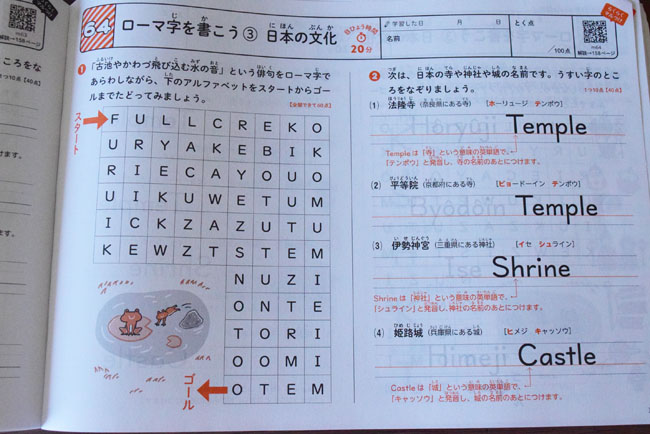 64
ローマ字を書こう③ 日本の文化
目ひょう時間
20分
学習した日　月　日
名前
とく点
100点
解説→158ページ
解説→158ページ
らくらく
マルつけ
1 「古池やかわづ飛び込む水の音」という俳句をローマ字で
あらわしながら、下のアルファベットをスタートからゴー
ルまでたどってみましょう。
【全部できて60点】
スタート
F U L L C R E K O
U R Y A K E B I K
R I E C A Y O U O
U I K U W E T U M
I C K Z A Z U T U
K E W Z T S T E M
N U Z I
O N T E
T O R I
O O M I
O T E M
ゴール
2 次は、日本の寺や神社や城の名前です。うすい字のとこ
ろをなぞりましょう。
1つ10点【40点】
(1) 法隆寺（奈良県にある寺）［ホーリュージ テンポウ］
Temple
Templeは「寺」という意味の英単語で、
「テンポウ」と発音し、寺の名前のあとにつけます。
(2) 平等院（京都府にある寺）［ビョードーイン テンポウ］
Temple
(3) 伊勢神宮（三重県にある神社）［イセ シュライン］
Shrine
Shrineは「神社」という意味の英単語で、
「シュライン」と発音し、神社の名前のあとにつけます。
(4) 姫路城（兵庫県にある城）［ヒメジ キャッソウ］
Castle
Castleは「城」という意味の英単語で、
「キャッソウ」と発音し、城の名前のあとにつけます。